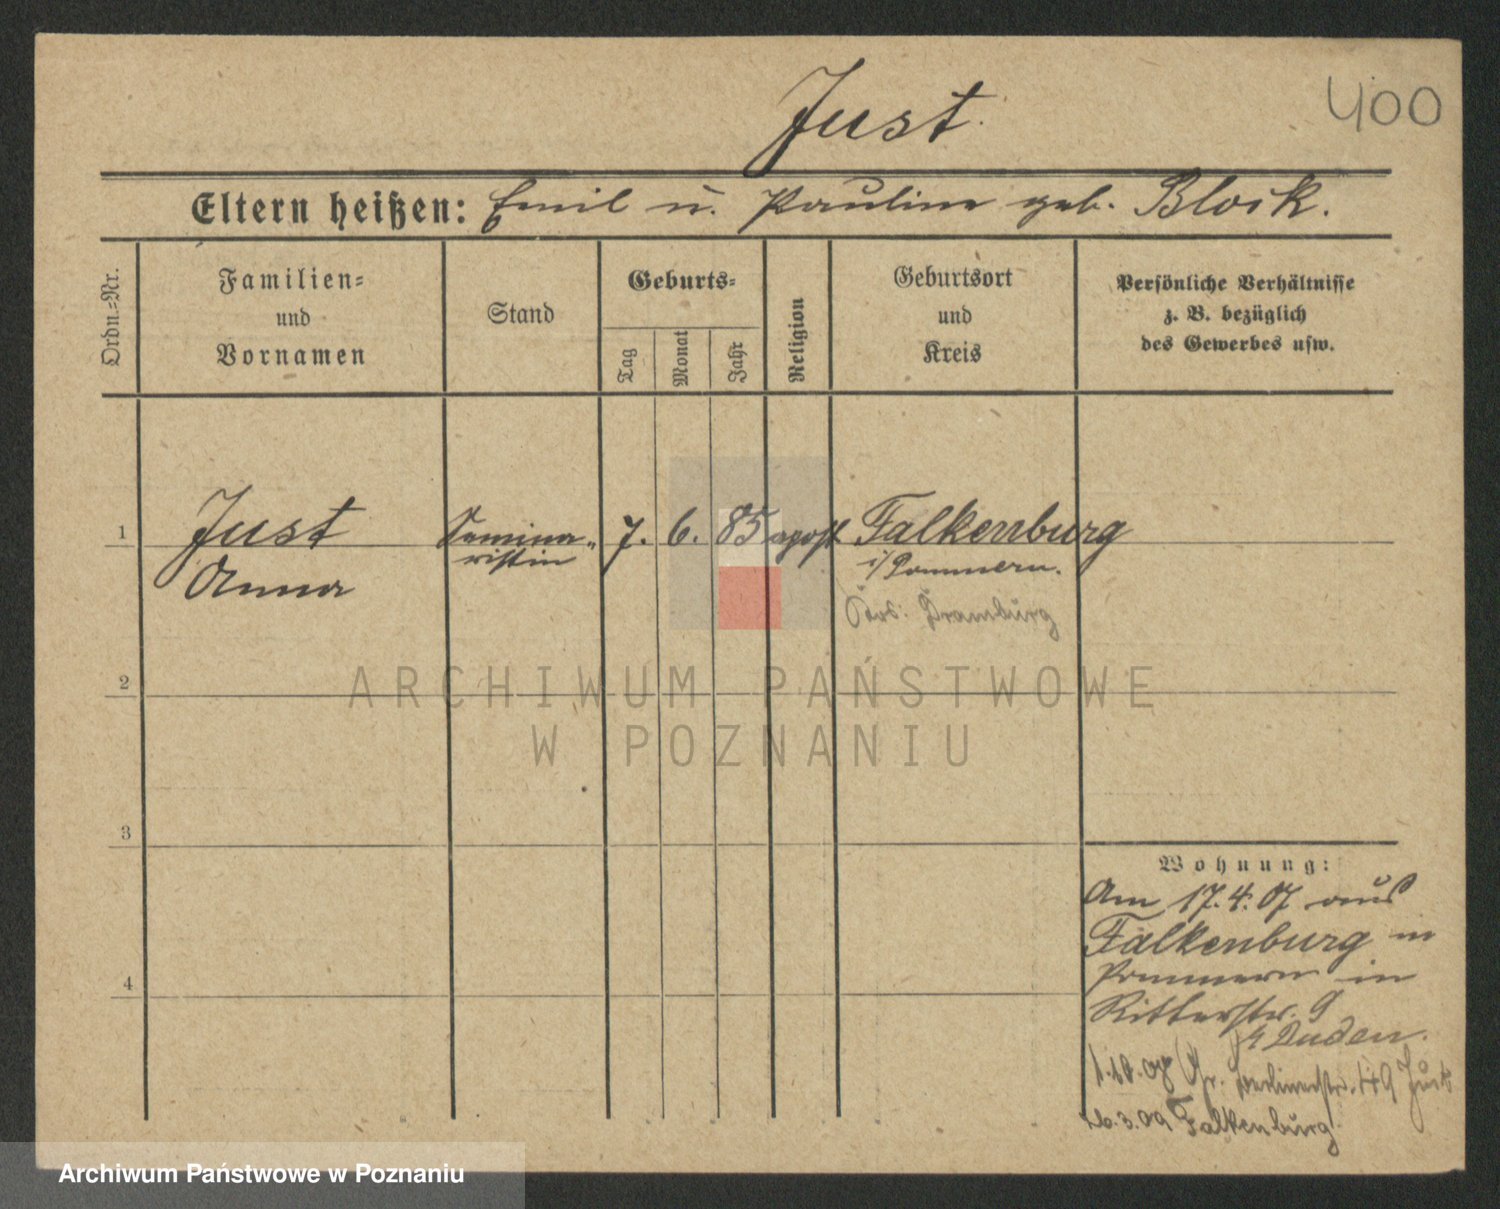 Just.
400
Eltern heißen: Emil u. Pauline geb. Block.
Ordn.-Nr.
Familien-
und
Vornamen
Stand
Geburts-
Tag
Monat
Jahr
Religion
Geburtsort
und
Kreis
Persönliche Verhältnisse
z. B. bezüglich
des Gewerbes usw.
1
Just
Anna
Semina-
ristin
7. 6. 85
apost
Falkenburg
i/Pommern.
Dramburg
2
ARCHIWUM PAŃSTWOWE
W POZNANIU
3
Wohnung:
Am 17.4.07 aus
Falkenburg in
Pommern in
Ritterstr. 9
Duden.
4
1.10.08 Gr. Berlinerstr. 49 Just
26.3.09 Falkenburg
Archiwum Państwowe w Poznaniu